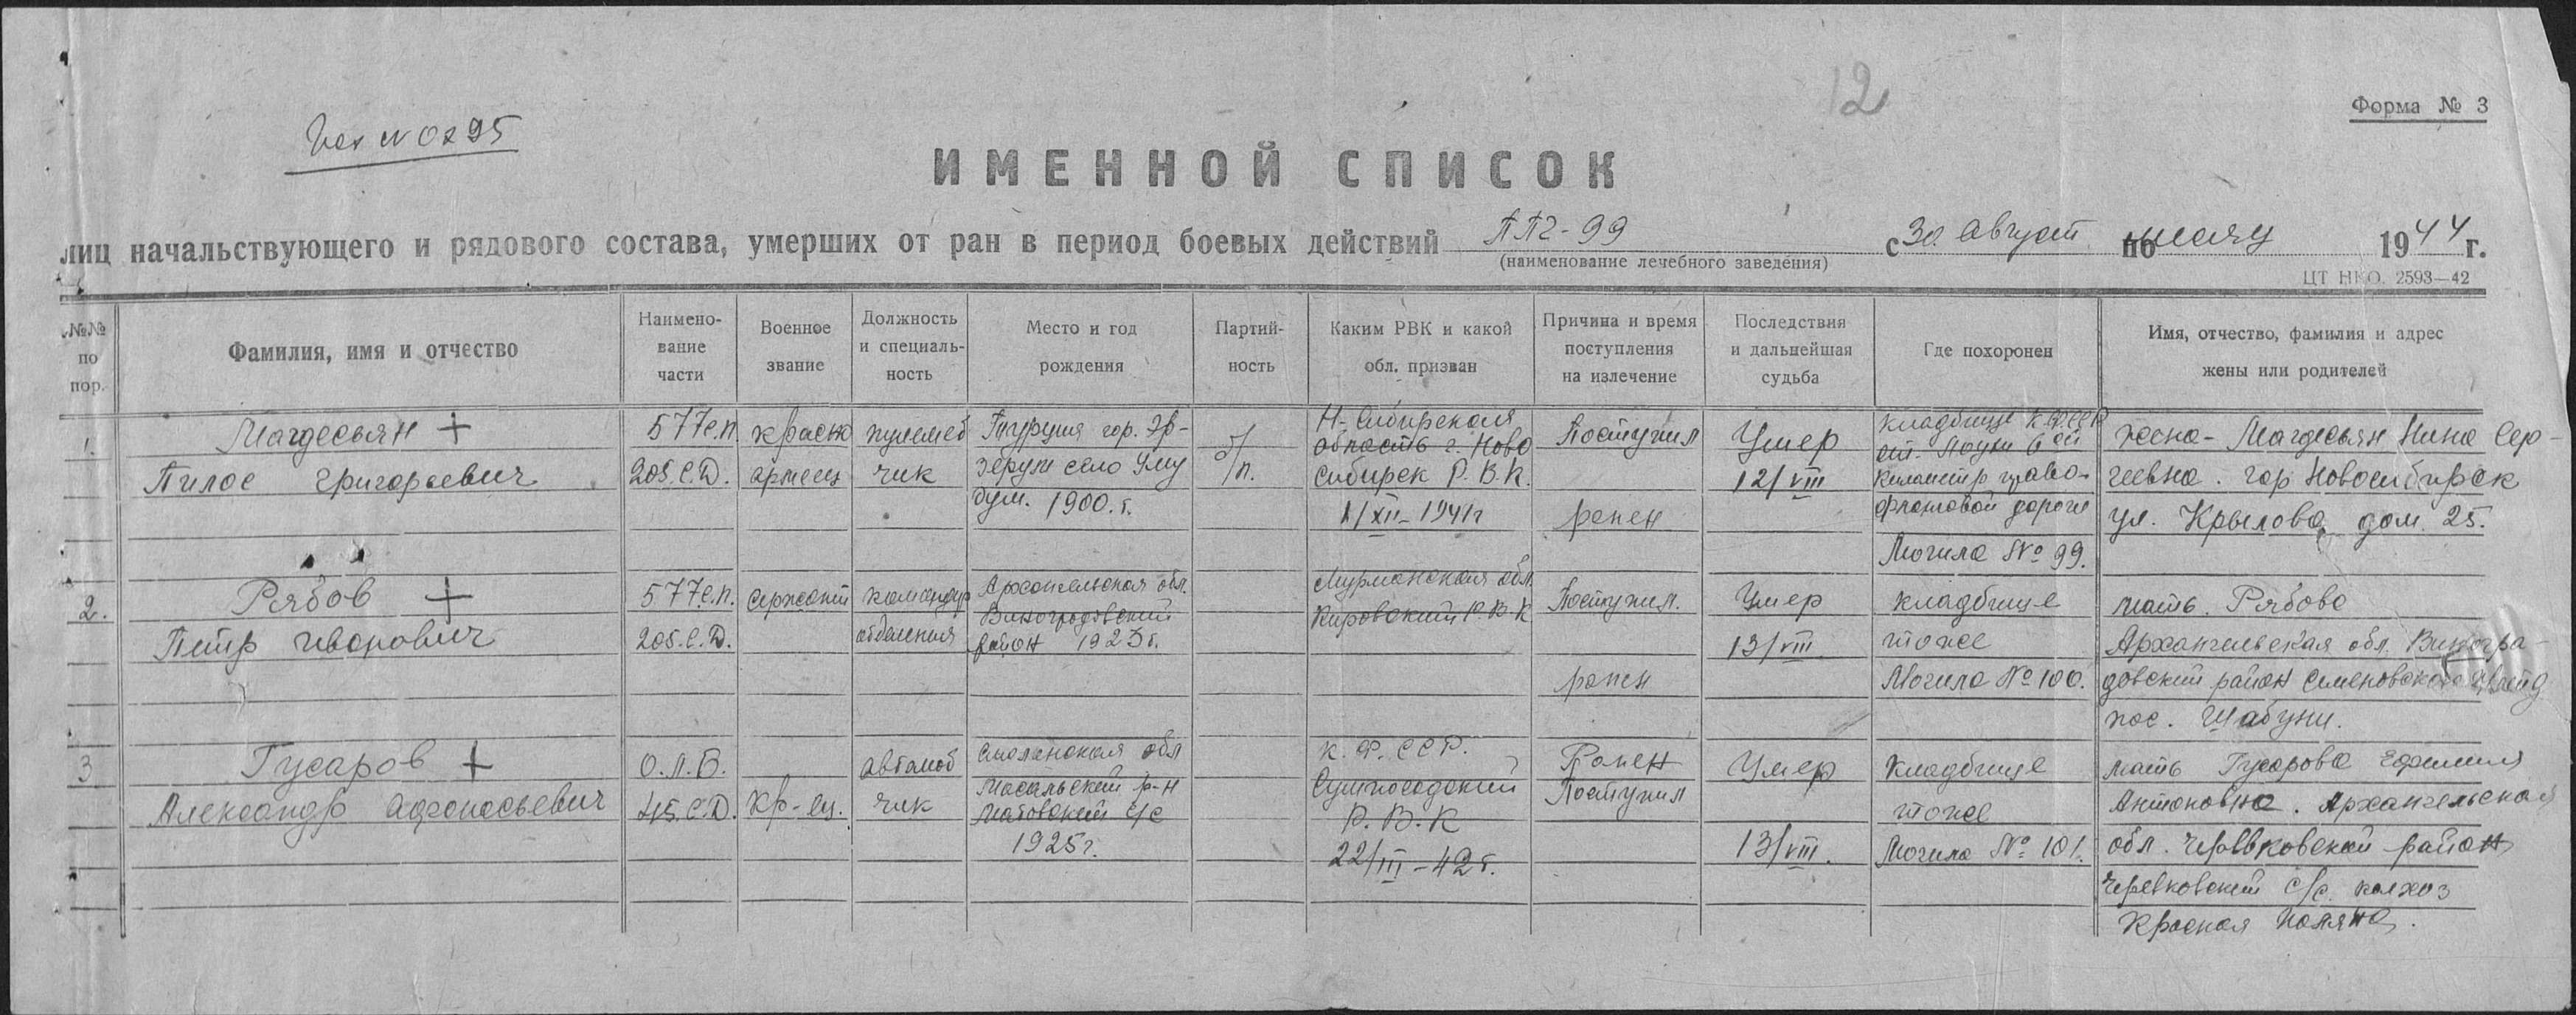 12
Форма № 3
Исх № 0295
ИМЕННОЙ СПИСОК
лиц начальствующего и рядового состава, умерших от ран в период боевых действий ППГ-99 с 30 август по 1944 г.
(наименование лечебного заведения)
ЦТ НКО. 2593—42
№№ по пор.
Фамилия, имя и отчество
Наимено-
вание
части
Военное
звание
Должность
и специаль-
ность
Место и год
рождения
Партий-
ность
Каким РВК и какой
обл. призван
Причина и время
поступления
на излечение
Последствия
и дальнейшая
судьба
Где похоронен
Имя, отчество, фамилия и адрес
жены или родителей
1.
Магдесьян +
Пилос Григорьевич
577 с.п.
205. С.Д.
красно
армеец
пулемет
чик
Турция гор. Эр-
зерум село Уму
дум. 1900. г.
б/
п.
Н-Сибирская
область г. Ново
сибирск Р.В.К.
1/XII-1941г
Поступил
ранен
Умер
12/VIII
Кладбище К.Ф.ССР
ст. Лоухи 6ой
километр право-
фланговой дороги
Могила № 99.
жена- Магдесьян Нина Сер-
геевна. гор Новосибирск
ул. Крылова дом. 25.
2.
Рябов +
Петр Иванович
577 с.п.
205. С.Д.
сержант
командир
отделения
Архангельская обл.
Виноградовский
район 1923г.
Мурманская обл.
Кировский Р.В.К
Поступил.
ранен
Умер
13/VIII.
Кладбище
тоже
Могила № 100.
мать. Рябова
Архангельская обл. Виногра-
довский район Семеновского
пос. Шабуни.
3
Гусаров +
Александр Афонасьевич
О.Л.Б.
45. С.Д.
кр-ец.
автомат
чик
Смоленская обл
Масальский р-н
с/с
1925г.
К.Ф.ССР.
Сумпосадский
Р.В.К
22/III-42г.
Ранен
Поступил
Умер
13/VIII.
Кладбище
тоже
Могила № 101.
мать Гусарова Ефимия
Антоновна. Архангельская
обл. Черевковский район
Черевковский с/с. колхоз
Красная Поляна.